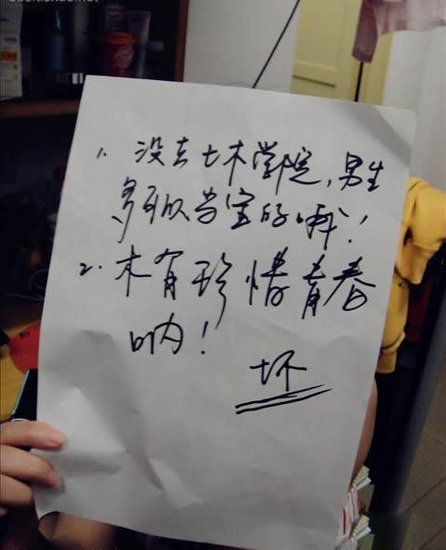 1. 没去土木学院，男生
多可以当宝的哦！
2. 木有珍惜青春
呐！
坏